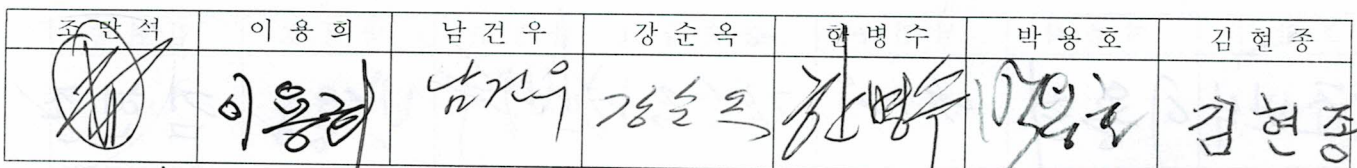 조만석 이용희 남건우 강순옥 한병수 박용호 김현종
이용희 남건우 강순옥 한병수 박용호 김현종